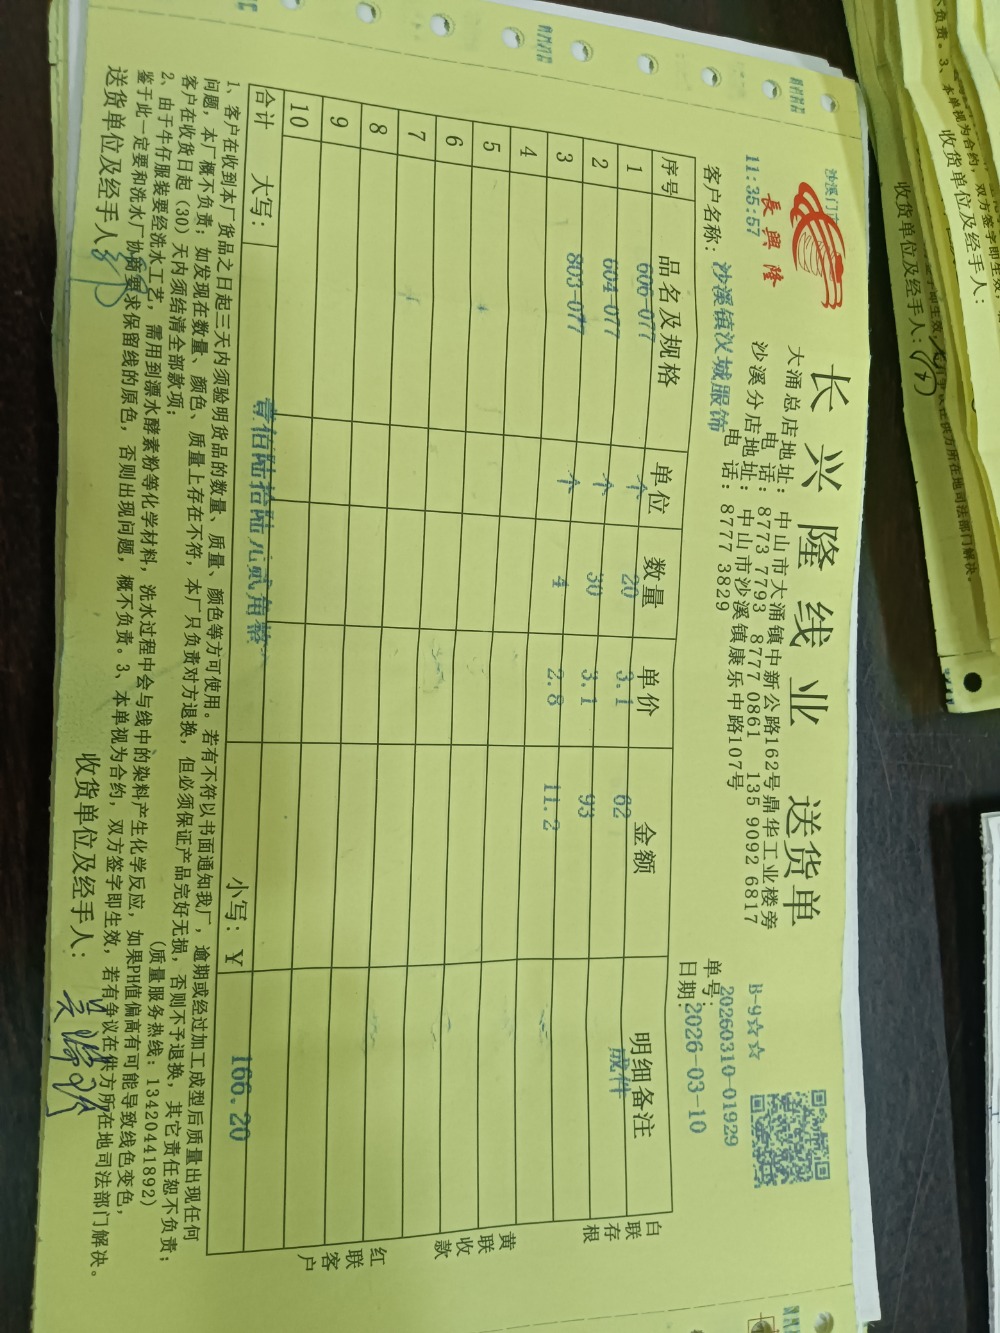 沙溪门市
11:35:57
長興隆
长兴隆线业 送货单
大涌总店地址：中山市大涌镇中新公路162号鼎华工业楼旁
电 话：8773 7793 8777 0861 135 9092 6817
沙溪分店地址：中山市沙溪镇康乐中路107号
电 话：8777 3829
B-9☆☆
客户名称：沙溪镇汉城服饰
单号：20260310-01929
日期：2026-03-10
序号 品名及规格 单位 数量 单价 金额 明细备注
1 606-077 个 20 3.1 62 成件
2 604-077 个 30 3.1 93
3 803-077 个 4 2.8 11.2
4
5
6
7
8
9
10
合计 大写：壹佰陆拾陆元贰角整 小写：¥ 166.20
白联存根
黄联收款
红联客户
1、客户在收到本厂货品之日起三天内须验明货品的数量、质量、颜色等方可使用。若有不符以书面通知我厂，逾期或经过加工成型后质量出现任何
问题，本厂概不负责；如发现在数量、颜色、质量上存在不符，本厂只负责对方退换，但必须保证产品完好无损，否则不予退换，其它责任恕不负责；
客户在收货日起（30）天内须结清全部款项； (质量服务热线：13420441892)
2、由于牛仔服装要经洗水工艺，需用到漂水酵素粉等化学材料，洗水过程中会与线中的染料产生化学反应，如果PH值偏高有可能导致线色变色，
鉴于此一定要和洗水厂协商要求保留线的原色，否则出现问题，概不负责。3、本单视为合约，双方签字即生效，若有争议在供方所在地司法部门解决。
送货单位及经手人：
收货单位及经手人：
不负责。3、本单视为合约，双方签字即生效
收货单位及经手人：
供方所在地司法部门解决。
收货单位及经手人：